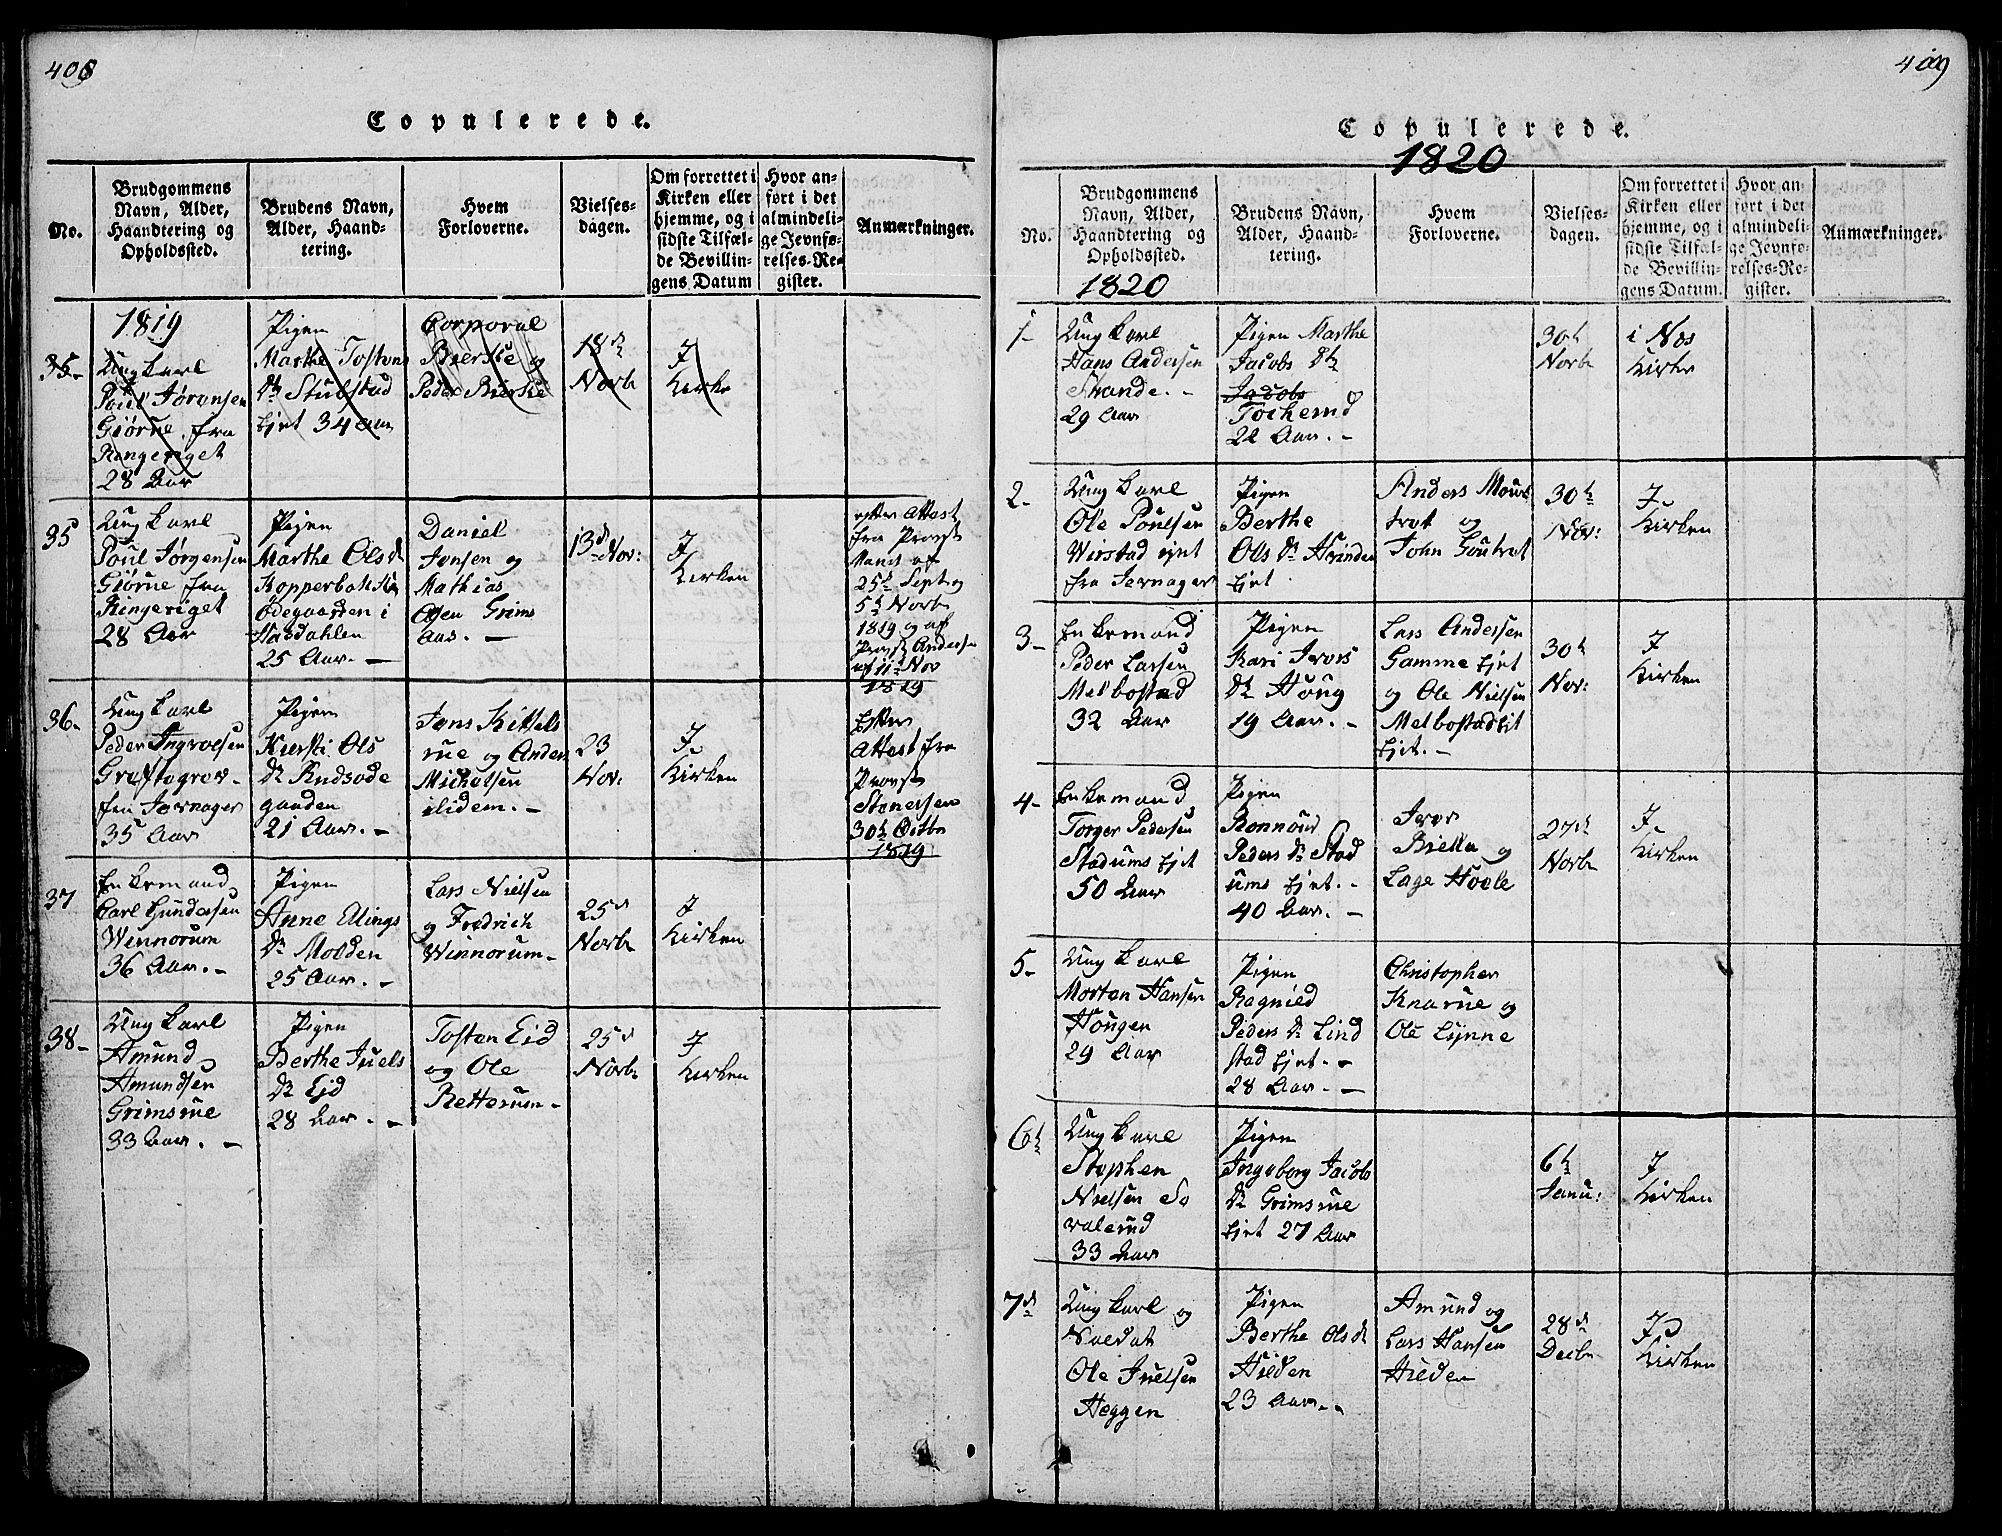 408
Copulerede.
No.
Brudgommens
Navn, Alder,
Haandtering og
Opholdssted.
Brudens Navn,
Alder, Haand-
tering.
Hvem
Forloverne.
Vielses-
dagen.
Om forrettet i
Kirken eller
hjemme, og i
sidste Tilfæl-
de Bevillin-
gens Datum
Hvor an-
ført i det
almindeli-
ge Jevnfø-
relses-Re-
gister.
Anmærkninger.
1819
35-
Ungkarl
Poul Jørensen
Giørne fra
Ringeriget
28 Aar
Pigen
Marthe Tostens
Dr Stubstad
Ejet 34 Aar
Corporal
Bierke og
Peder Bierke
18de
Novb
I
Kirke
35
Ungkarl
Poul Jørgensen
Giørne fra
Ringeriget
28 Aar
Pigen
Marthe Ols D
Kopperbak
Ødegaarden i
Hasdahlen
25 Aar. -
Daniel
Jensen og
Mathias
Grims
Aas. -
13d Nov:
I
Kirken
efter Attest
fra Provst
af
25d Sept og
5t Novb
1819 og af
Provst Anders
af 11t Nov
1819
36-
Ungkarl
Peder Ingvolsen
fra Jevnager
35 Aar
Pigen
Kiersti Ols
Dr Knudsøde
gaarden
21 Aar. -
Jens Kittels
rue og Anders
Michelsen
ibidem. -
23
Nov:
I
Kirken
Efter
Attest fra
Provst
Stenersen
30t Octbr
1819
37
Enkemand
Carl Gundersen
Winnorum
36 Aar. -
Pigen
Anne Ellings
Dr Molden
25 Aar. -
Lars Nielsen
og Fredrich
Winnorum-
25d
Novb
I
Kirken
38-
Ungkarl
Amund
Amundsen
Grimsrue
33 Aar. -
Pigen
Berthe Juels
Dr Eid
28 Aar. -
Tosten Eid
og Ole
Retterum-
25d
Novb
I
Kirken
409
Copulerede.
1820
No.
Brudgommens
Navn, Alder,
Haandtering og
Opholdssted.
1820
Brudens Navn,
Alder, Haand-
tering.
Hvem
Forloverne.
Vielses-
dagen.
Om forrettet i
Kirken eller
hjemme, og i
sidste Tilfæl-
de Bevillin-
gens Datum.
Hvor an-
ført i det
almindeli-
ge Jevnfø-
relses-Re-
gister.
Anmærkninger.
1-
Ungkarl
Hans Andersen
Strande. -
29 Aar
Pigen Marthe
Jacobs Dtr
Jacobs
22 Aar. -
30t
Novb
i Næs
Kirke
2-
Ungkarl
Ole Poulsen
Wirstad Ejet
fra Jevnager
Pigen
Berthe
Ols Dr Hvinden
Ejet
Anders
og
John
30t
Nov:
I
Kirken
3-
Enkemand
Peder Larsen
Melbostad
32 Aar
Pigen
Kari Ivers
Dr Houg
19 Aar. -
Lars Andersen
Gamme Ejet
og Ole Nielsen
Melbostad
Ejet. -
30t
Nov:
I
Kirken
4-
Enkemand
Torger Pedersen
Stadums Ejet
50 Aar
Pigen
Rønnoug
Peders Dr Stad
ums Ejet. -
40 Aar. -
Iver
Brella og
Lage Hvole
27de
Novb
I
Kirken
5-
Ungkarl
Morten Hansen
Hougen
29 Aar
Pigen
Ragnild
Peders Dr Lind
stad Ejet. -
28 Aar. -
Christopher
Knarue og
Ole Lynne
6t
Ungkarl
Stephen
Nielsen So
valerud
33 Aar
Pigen
Ingeborg Jacobs
Dr Grimsrue
Ejet 27 Aar
6t
Janu:
I
Kirken
7d
Ungkarl og
Soldat
Ole Juelsen
Heggen
Pigen
Berthe Ols D
Hilden
23 Aar. -
Amund og
Lars Hansen
Hilden
28d
Decbr
I
Kirken